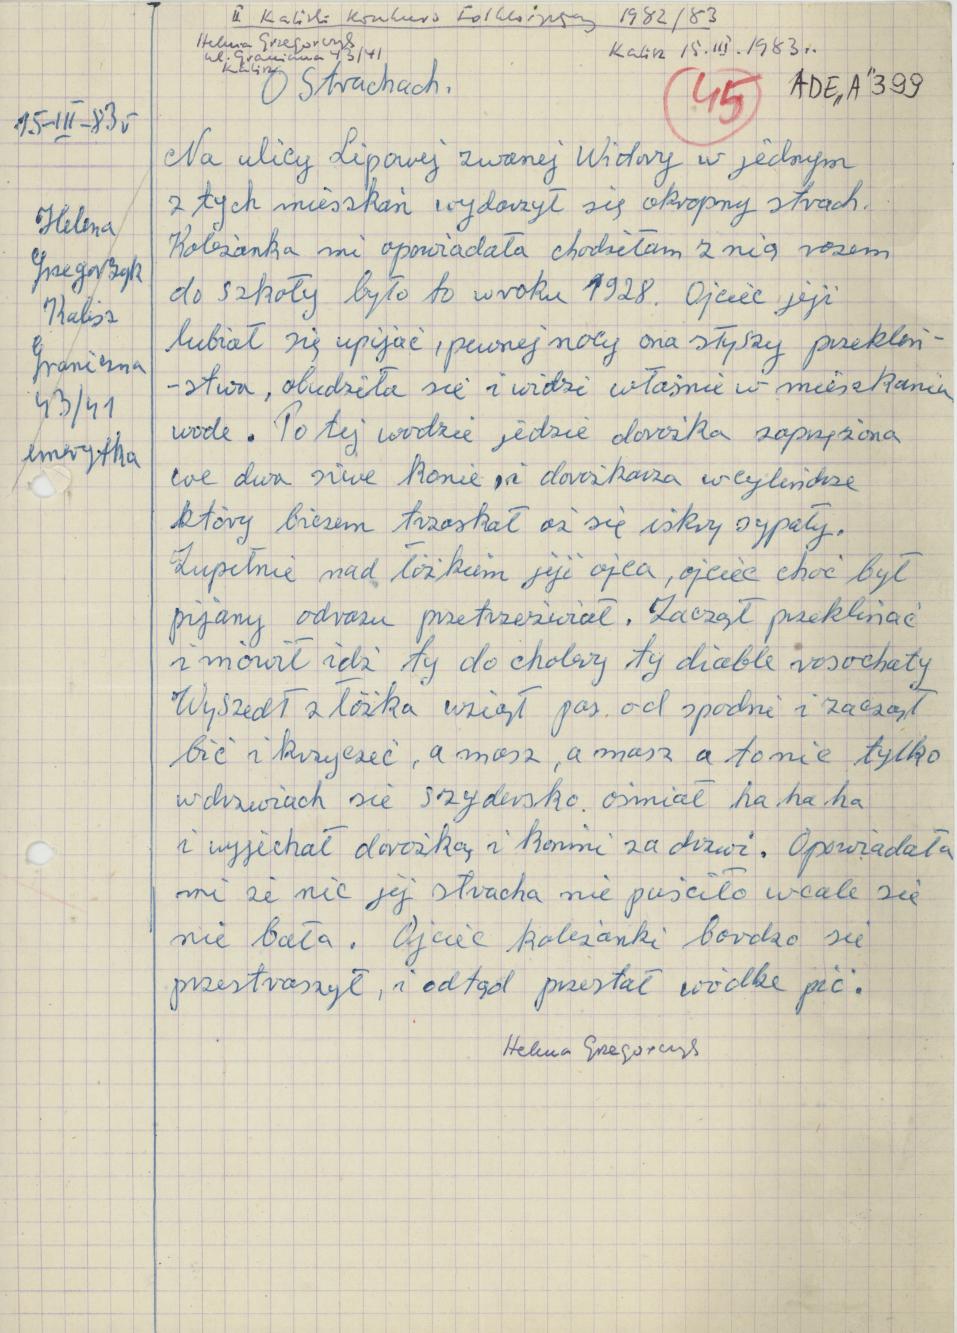 II Kaliski Konkurs Folklorystyczny 1982/83
Helena Grzegorczyk
ul. Graniczna 43/41
Kalisz
Kalisz 15.III.1983r.
O Strachach.
45
ADE„A”399
15-III-83r
Helena
Grzegorzyk
Kalisz
Graniczna
43/41
emerytka
Na ulicy Lipowej zwanej Widory w jednym
z tych mieszkań wydarzył się okropny strach.
Koleżanka mi opowiadała chodziłam z nią razem
do szkoły było to w roku 1928. Ojciec jeji
lubiał się upijać, pewnej nocy ona słyszy przekleń-
-stwa, obudziła się i widzi właśnie w mieszkaniu
wode. Po tej wodzie jedzie dorożka zaprzężona
we dwa siwe konie, i dorożkarza w cylindrze
który biczem trzaskał aż się iskry sypały.
Zupełnie nad łóżkiem jeji ojca, ojciec choć był
pijany odrazu przetrzeźwiał. Zaczął przeklinać
i mówił idź ty do cholery ty diable rosochaty
Wyszedł z łóżka wziął pas od spodni i zaczął
bić i krzyczeć, a masz, a masz a to nic tylko
w drzwiach się szydersko ośmiał ha ha ha
i wyjechał dorożką i końmi za drzwi. Opowiadała
mi że nic jej stracha nie puściło wcale się
nie bała. Ojciec koleżanki bardzo się
przestraszył, i odtąd przestał wódke pić.
Helena Grzegorczyk